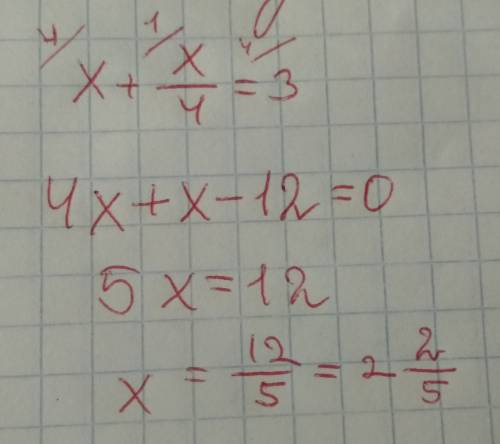 4/ 1/ 4/
x + x/4 = 3
4x + x - 12 = 0
5x = 12
x = 12/5 = 2 2/5